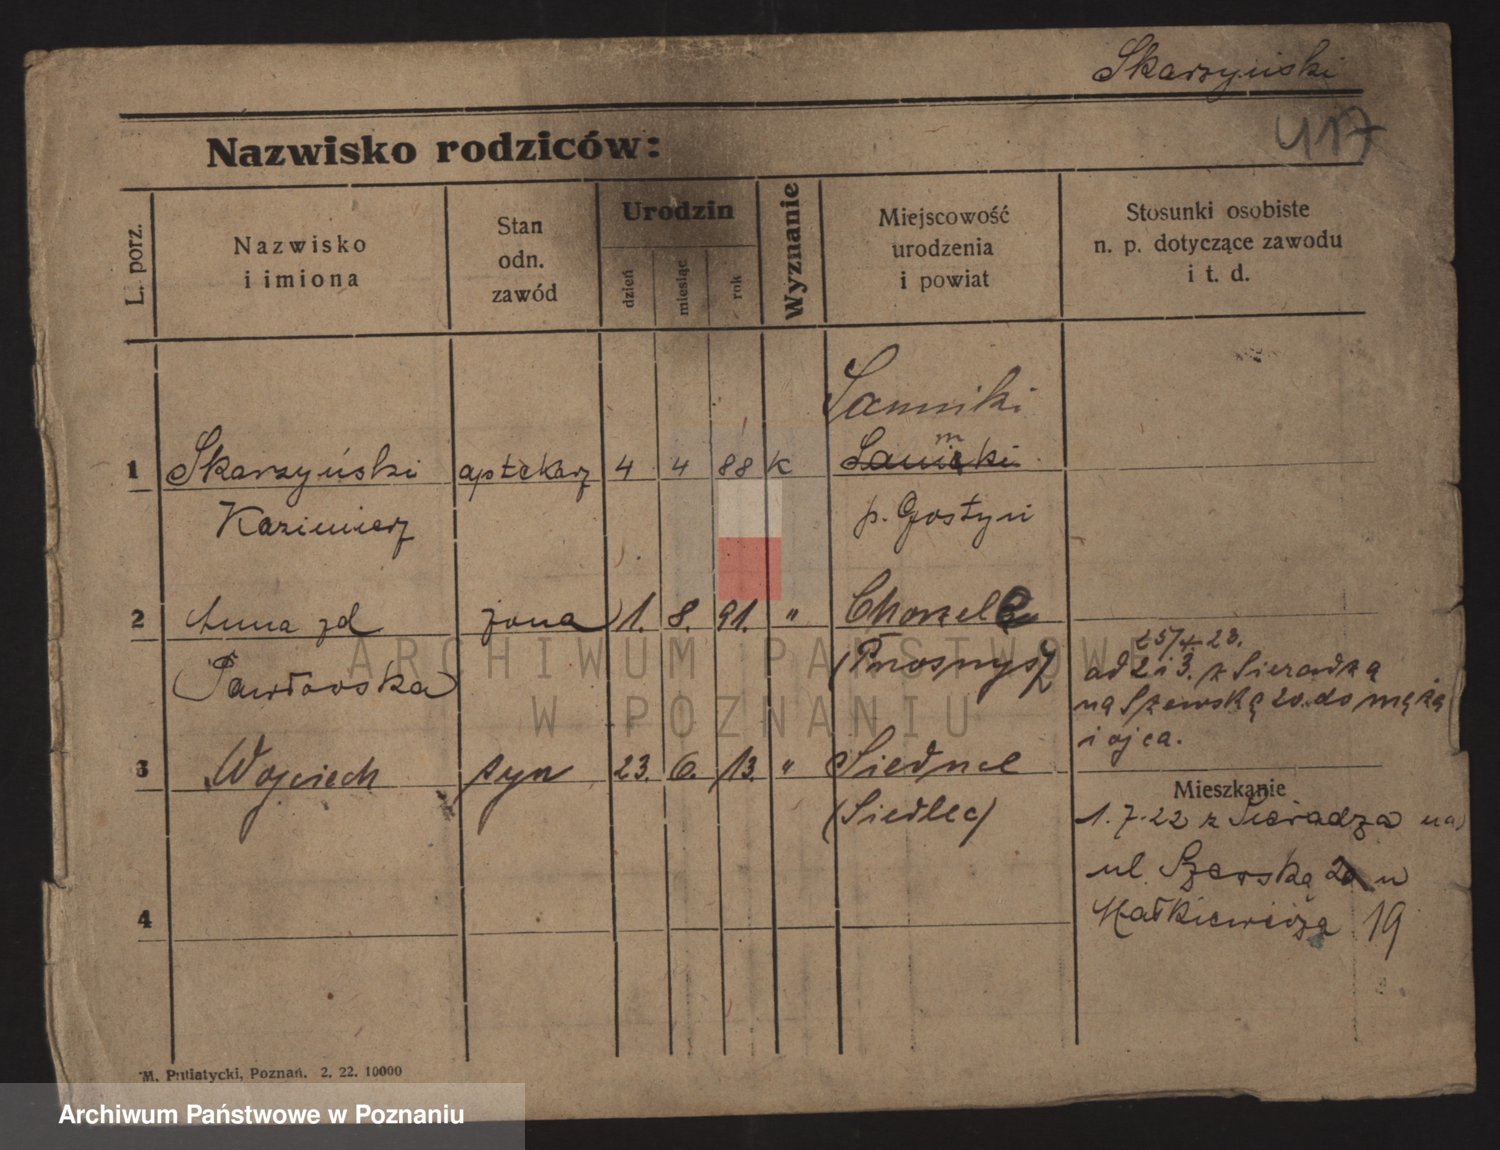 Skarzyński
417
Nazwisko rodziców:
L. porz.
Nazwisko
i imiona
Stan
odn.
zawód
Urodzin
dzień
miesiąc
rok
Wyznanie
Miejscowość
urodzenia
i powiat
Stosunki osobiste
n. p. dotyczące zawodu
i t. d.
Sanniki
1 Skarzyński aptekarz 4 4 88 K
Kazimierz
p. Gostyń
2 Anna zd żona 1. 8. 91. " Chorzele
Pawłowska (Przasnysz
25/4 23.
ad 2 i 3. z Sieradza
na Szewską 20. do męża
i ojca.
3 Wojciech syn 23. 6. 13. " Siedlce
(Siedlec)
Mieszkanie
1. 7. 22 z Sieradza na
ul. Szewską 20 u
Małkiewicza 19
4
M. Putiatycki, Poznań. 2. 22. 10000
ARCHIWUM PAŃSTWOWE
W POZNANIU
Archiwum Państwowe w Poznaniu